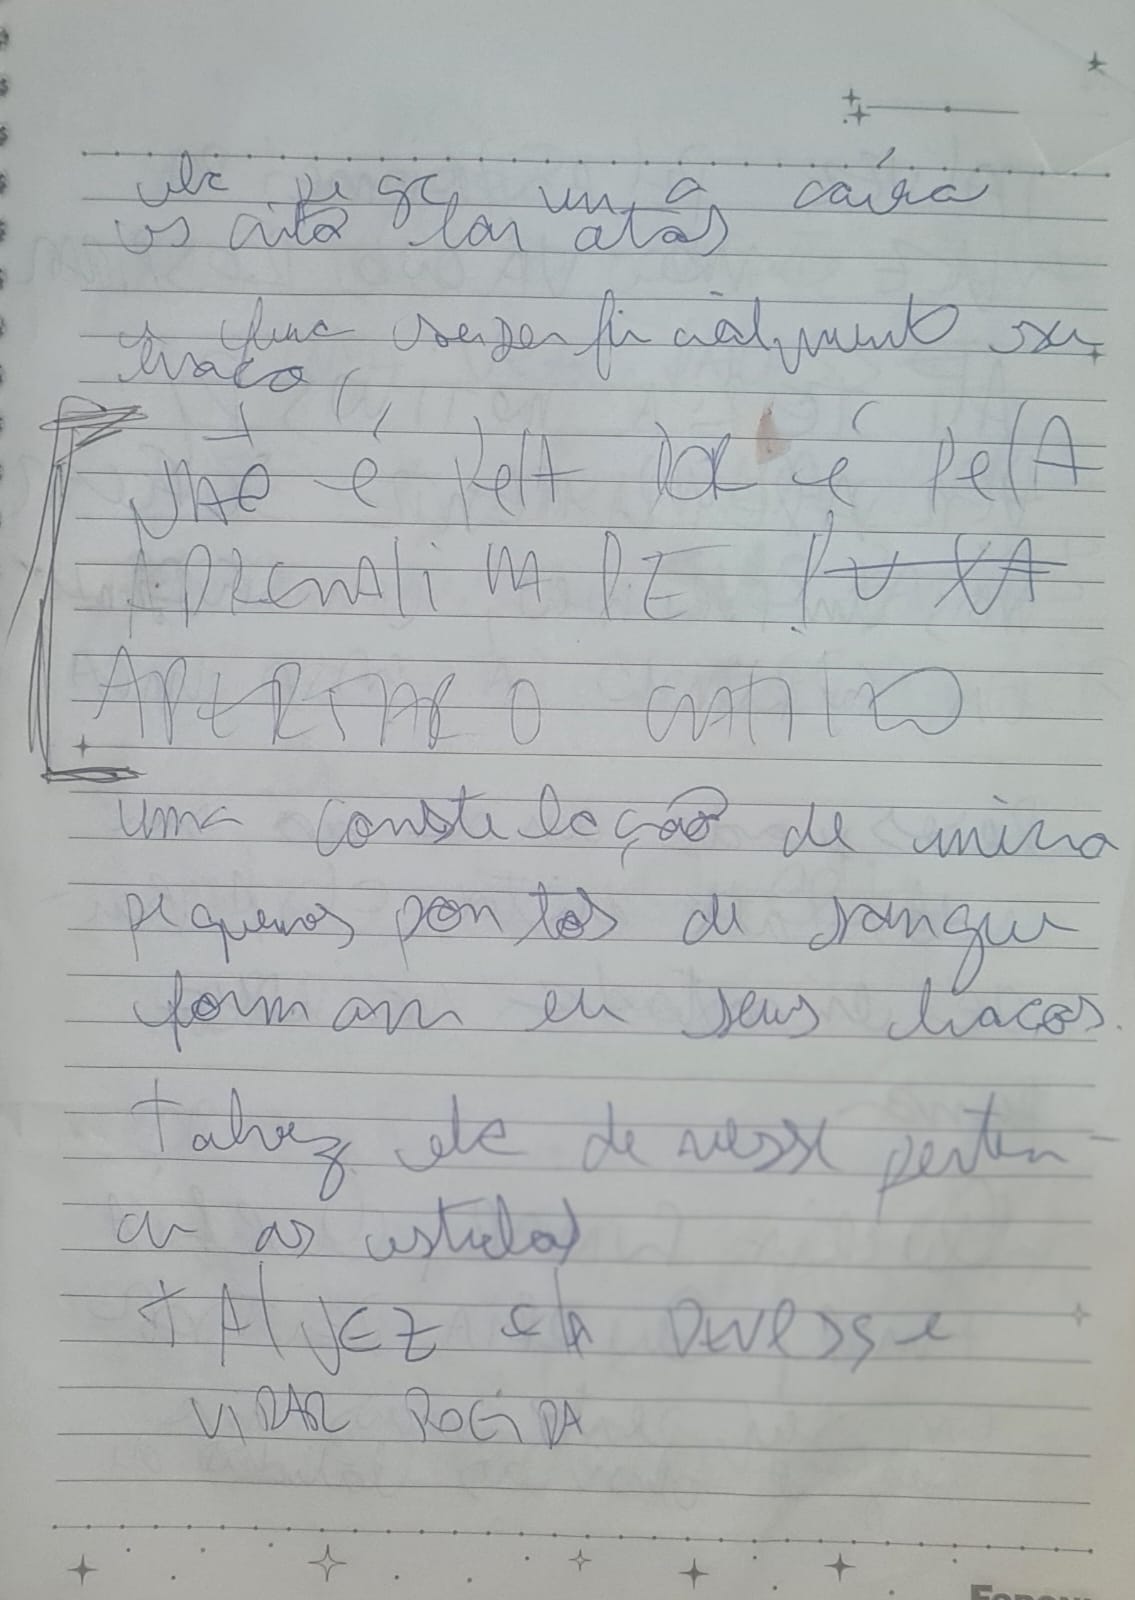 ela pega uma caixa
fura superficialmente seu
braço,
NÃO É PELA DOR É PELA
ADRENALINA DE PUXA
APERTAR O GATILHO
uma constelação de
pequenos pontos de sangue
formam em seus bracos.
talvez ela devesse perten-
cer as estrelas
tALVEZ elA DEVESSe
VIRAR POEIRA